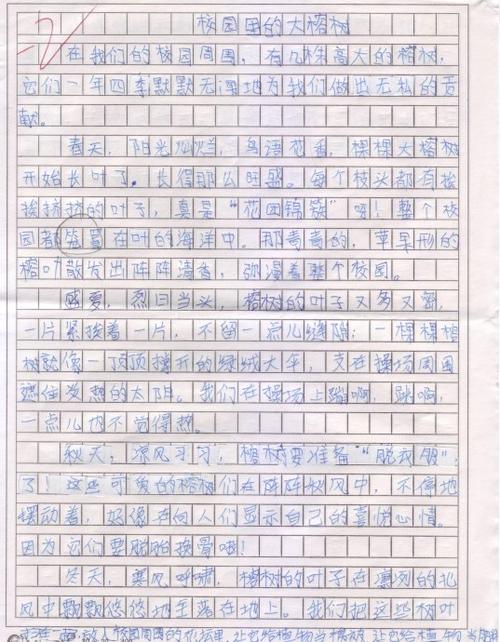 -2
校园里的大榕树
在我们的校园周围，有几株高大的榕树，
它们一年四季默默无闻地为我们做出无私的贡
献。
春天，阳光灿烂，鸟语花香，棵棵大榕树
开始长叶了。长得那么旺盛。每个枝头都有挨
挨挤挤的叶子，真是“花团锦簇”呀！整个校
园都笼罩在叶的海洋中。那青青的，苹果形的
榕叶散发出阵阵清香，弥漫着整个校园。
盛夏，烈日当头，榕树的叶子又多又密，
一片紧挨着一片，不留一点儿缝隙；一棵棵榕
树就像一顶顶撑开的绿绒大伞，支在操场周围
遮住炎热的太阳。我们在操场上蹦啊，跳啊，
一点儿也不觉得热。
秋天，凉风习习，榕树要准备“脱衣服”
了！这些可爱的榕树们在阵阵秋风中，不停地
摆动着，好像在向人们显示自己的喜悦心情。
因为它们要脱胎换骨哦！
冬天，寒风呼啸，榕树的叶子在凛冽的北
风中飘飘悠悠地坠落在地上。我们把这些树叶